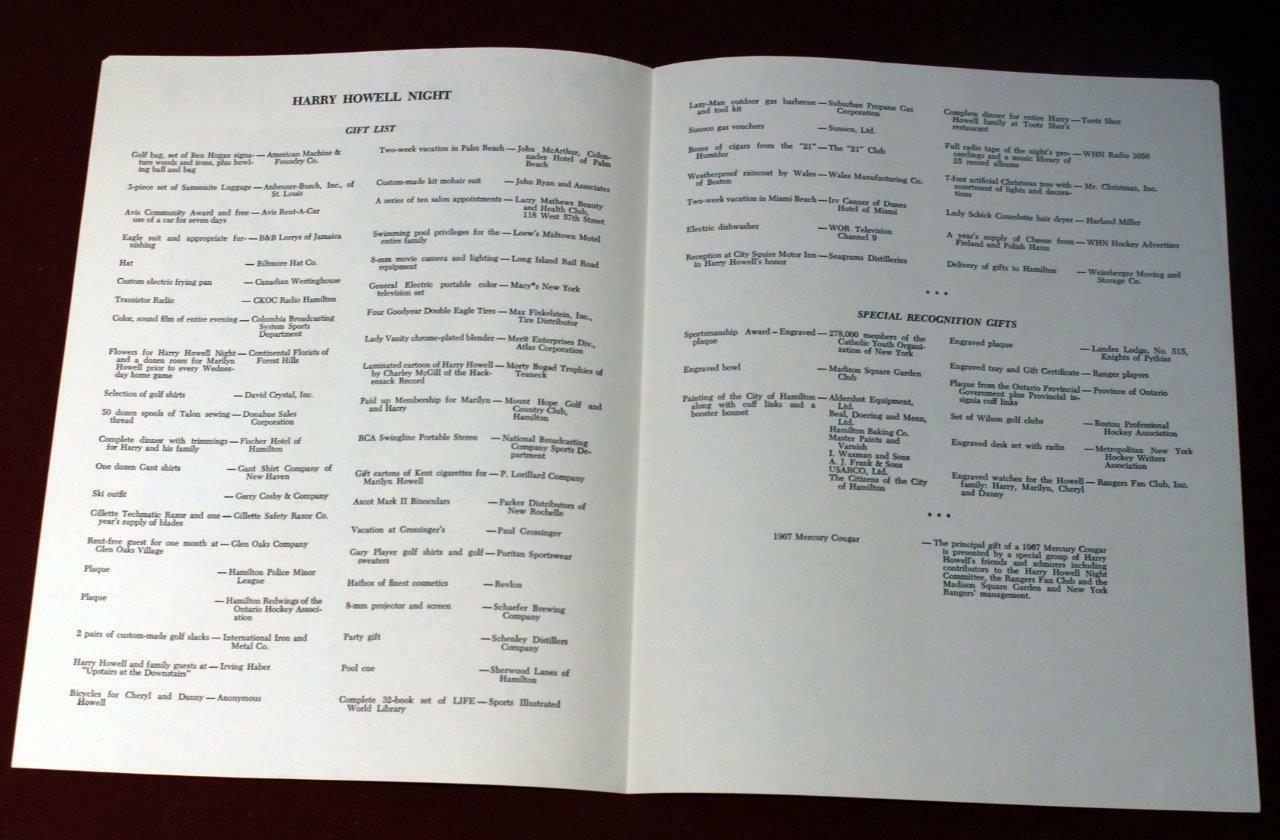 HARRY HOWELL NIGHT
GIFT LIST
Golf bag, set of Ben Hogan signa- — American Machine &
ture woods and irons, plus bowl- Foundry Co.
ing ball and bag
3-piece set of Samsonite Luggage — Anheuser-Busch, Inc., of
St. Louis
Avis Community Award and free — Avis Rent-A-Car
use of a car for seven days
Eagle suit and appropriate fur- — B&B Lorrys of Jamaica
nishing
Hat — Biltmore Hat Co.
Custom electric frying pan — Canadian Westinghouse
Transistor Radio — CKOC Radio Hamilton
Color, sound film of entire evening — Columbia Broadcasting
System Sports
Department
Flowers for Harry Howell Night — Continental Florists of
and a dozen roses for Marilyn Forest Hills
Howell prior to every Wednes-
day home game
Selection of golf shirts — David Crystal, Inc.
50 dozen spools of Talon sewing — Donahue Sales
thread Corporation
Complete dinner with trimmings — Fischer Hotel of
for Harry and his family Hamilton
One dozen Gant shirts — Gant Shirt Company of
New Haven
Ski outfit — Gerry Cosby & Company
Gillette Techmatic Razor and one — Gillette Safety Razor Co.
year's supply of blades
Rent-free guest for one month at — Glen Oaks Company
Glen Oaks Village
Plaque — Hamilton Police Minor
League
Plaque — Hamilton Redwings of the
Ontario Hockey Associ-
ation
2 pairs of custom-made golf slacks — International Iron and
Metal Co.
Harry Howell and family guests at — Irving Haber
"Upstairs at the Downstairs"
Bicycles for Cheryl and Danny — Anonymous
Howell
Two-week vacation in Palm Beach — John McArthur, Colon-
nades Hotel of Palm
Beach
Custom-made kit mohair suit — John Ryan and Associates
A series of ten salon appointments — Larry Mathews Beauty
and Health Club,
118 West 57th Street
Swimming pool privileges for the — Loew's Midtown Motel
entire family
8-mm movie camera and lighting — Long Island Rail Road
equipment
General Electric portable color — Macy*s New York
television set
Four Goodyear Double Eagle Tires — Max Finkelstein, Inc.,
Tire Distributor
Lady Vanity chrome-plated blender — Merit Enterprises Div.,
Atlas Corporation
Laminated cartoon of Harry Howell — Morty Bogad Trophies of
by Charley McGill of the Hack- Teaneck
ensack Record
Paid up Membership for Marilyn — Mount Hope Golf and
and Harry Country Club,
Hamilton
RCA Swingline Portable Stereo — National Broadcasting
Company Sports De-
partment
Gift cartons of Kent cigarettes for — P. Lorillard Company
Marilyn Howell
Ascot Mark II Binoculars — Parker Distributors of
New Rochelle
Vacation at Grossinger's — Paul Grossinger
Gary Player golf shirts and golf — Puritan Sportswear
sweaters
Hatbox of finest cosmetics — Revlon
8-mm projector and screen — Schaefer Brewing
Company
Party gift — Schenley Distillers
Company
Pool cue — Sherwood Lanes of
Hamilton
Complete 32-book set of LIFE — Sports Illustrated
World Library
Lazy-Man outdoor gas barbecue — Suburban Propane Gas
and tool kit Corporation
Sunoco gas vouchers — Sunoco, Ltd.
Boxes of cigars from the "21" — The "21" Club
Humidor
Weatherproof raincoat by Wales — Wales Manufacturing Co.
of Boston
Two-week vacation in Miami Beach — Irv Canner of Dunes
Hotel of Miami
Electric dishwasher — WOR Television
Channel 9
Reception at City Squire Motor Inn — Seagrams Distilleries
in Harry Howell's honor
Complete dinner for entire Harry — Toots Shor
Howell family at Toots Shor's
restaurant
Full radio tape of the night's pro- — WHN Radio 1050
ceedings and a music library of
25 record albums
7-foot artificial Christmas tree with — Mr. Christmas, Inc.
assortment of lights and decora-
tions
Lady Schick Consolette hair dryer — Harland Miller
A year's supply of Cheese from — WHN Hockey Advertiser
Finland and Polish Hams
Delivery of gifts to Hamilton — Weissberger Moving and
Storage Co.
* * *
SPECIAL RECOGNITION GIFTS
Sportsmanship Award – Engraved — 278,000 members of the
plaque Catholic Youth Organi-
zation of New York
Engraved bowl — Madison Square Garden
Club
Painting of the City of Hamilton — Aldershot Equipment,
along with cuff links and a Ltd.
booster bonnet Beal, Doering and Meen,
Ltd.
Hamilton Baking Co.
Master Paints and
Varnish
I. Waxman and Sons
A. J. Frank & Sons
USARCO, Ltd.
The Citizens of the City
of Hamilton
Engraved plaque — Landes Lodge, No. 515,
Knights of Pythias
Engraved tray and Gift Certificate — Ranger players
Plaque from the Ontario Provincial — Province of Ontario
Government plus Provincial in-
signia cuff links
Set of Wilson golf clubs — Boston Professional
Hockey Association
Engraved desk set with radio — Metropolitan New York
Hockey Writers
Association
Engraved watches for the Howell — Rangers Fan Club, Inc.
family: Harry, Marilyn, Cheryl
and Danny
* * *
1967 Mercury Cougar — The principal gift of a 1967 Mercury Cougar
is presented by a special group of Harry
Howell's friends and admirers including
contributors to the Harry Howell Night
Committee, the Rangers Fan Club and the
Madison Square Garden and New York
Rangers' management.